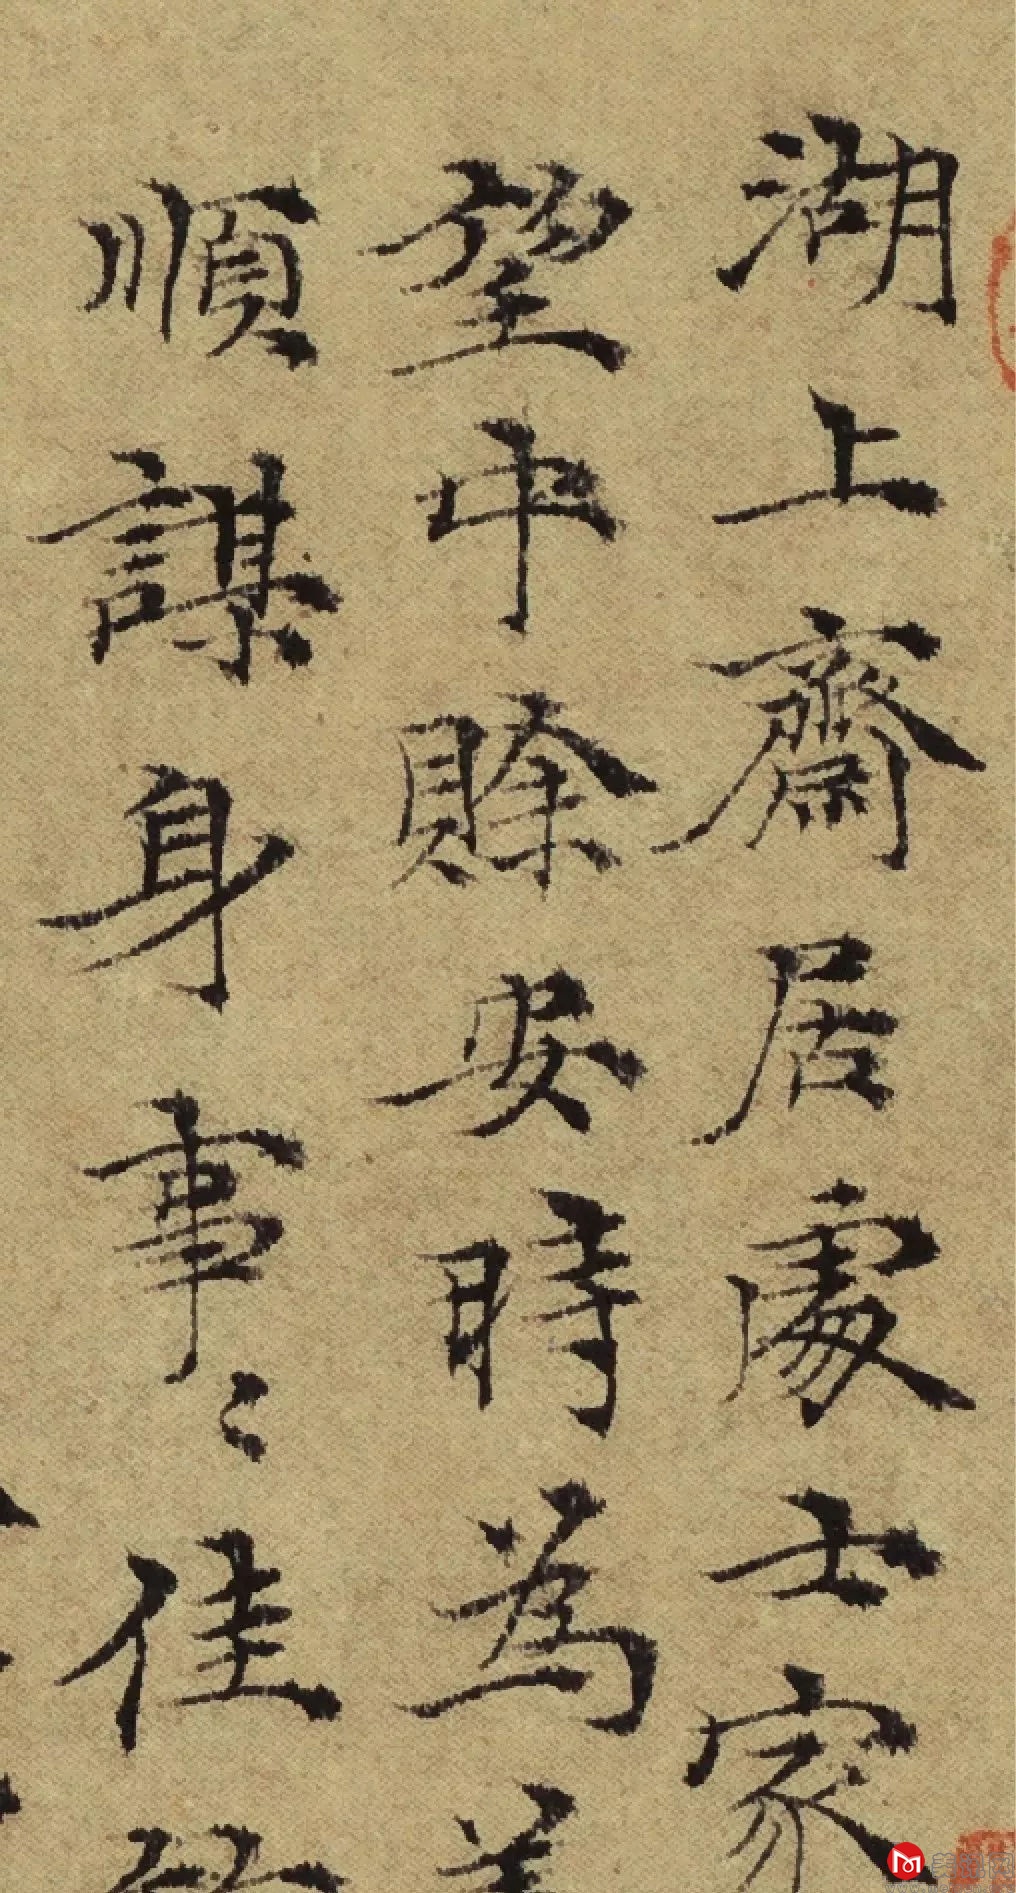 湖上齋居處士家
望中賒安時為
順謀身事〻佳